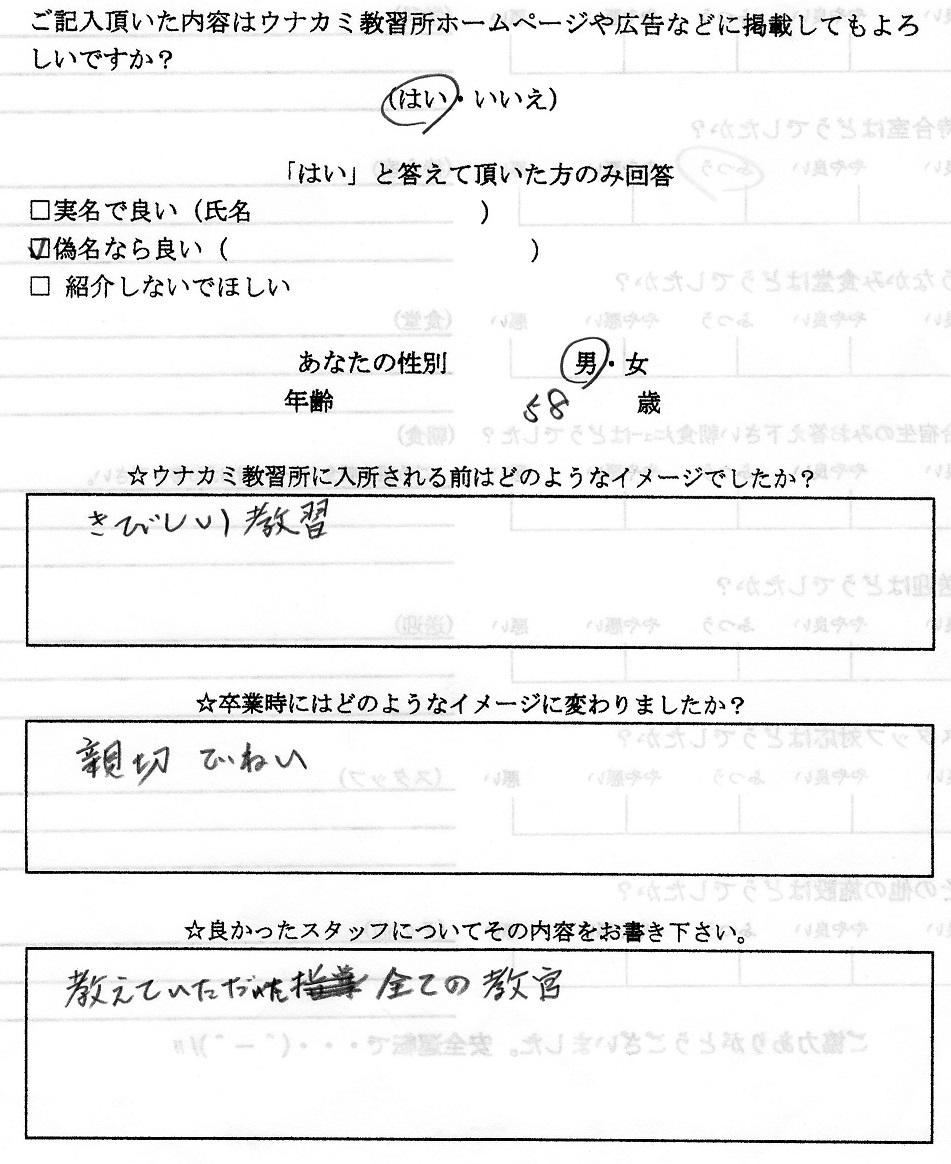 ご記入頂いた内容はウナカミ教習所ホームページや広告などに掲載してもよろ
しいですか？
(はい・いいえ)
「はい」と答えて頂いた方のみ回答
□実名で良い（氏名　　　　　　　　　）
☑偽名なら良い（　　　　　　　　　　　　）
□ 紹介しないでほしい
あなたの性別　　　　　男・女
年齢　　　　　　　　58　　歳
☆ウナカミ教習所に入所される前はどのようなイメージでしたか？
きびしい教習
☆卒業時にはどのようなイメージに変わりましたか？
親切 でいねい
☆良かったスタッフについてその内容をお書き下さい。
教えていただいた 全ての教官